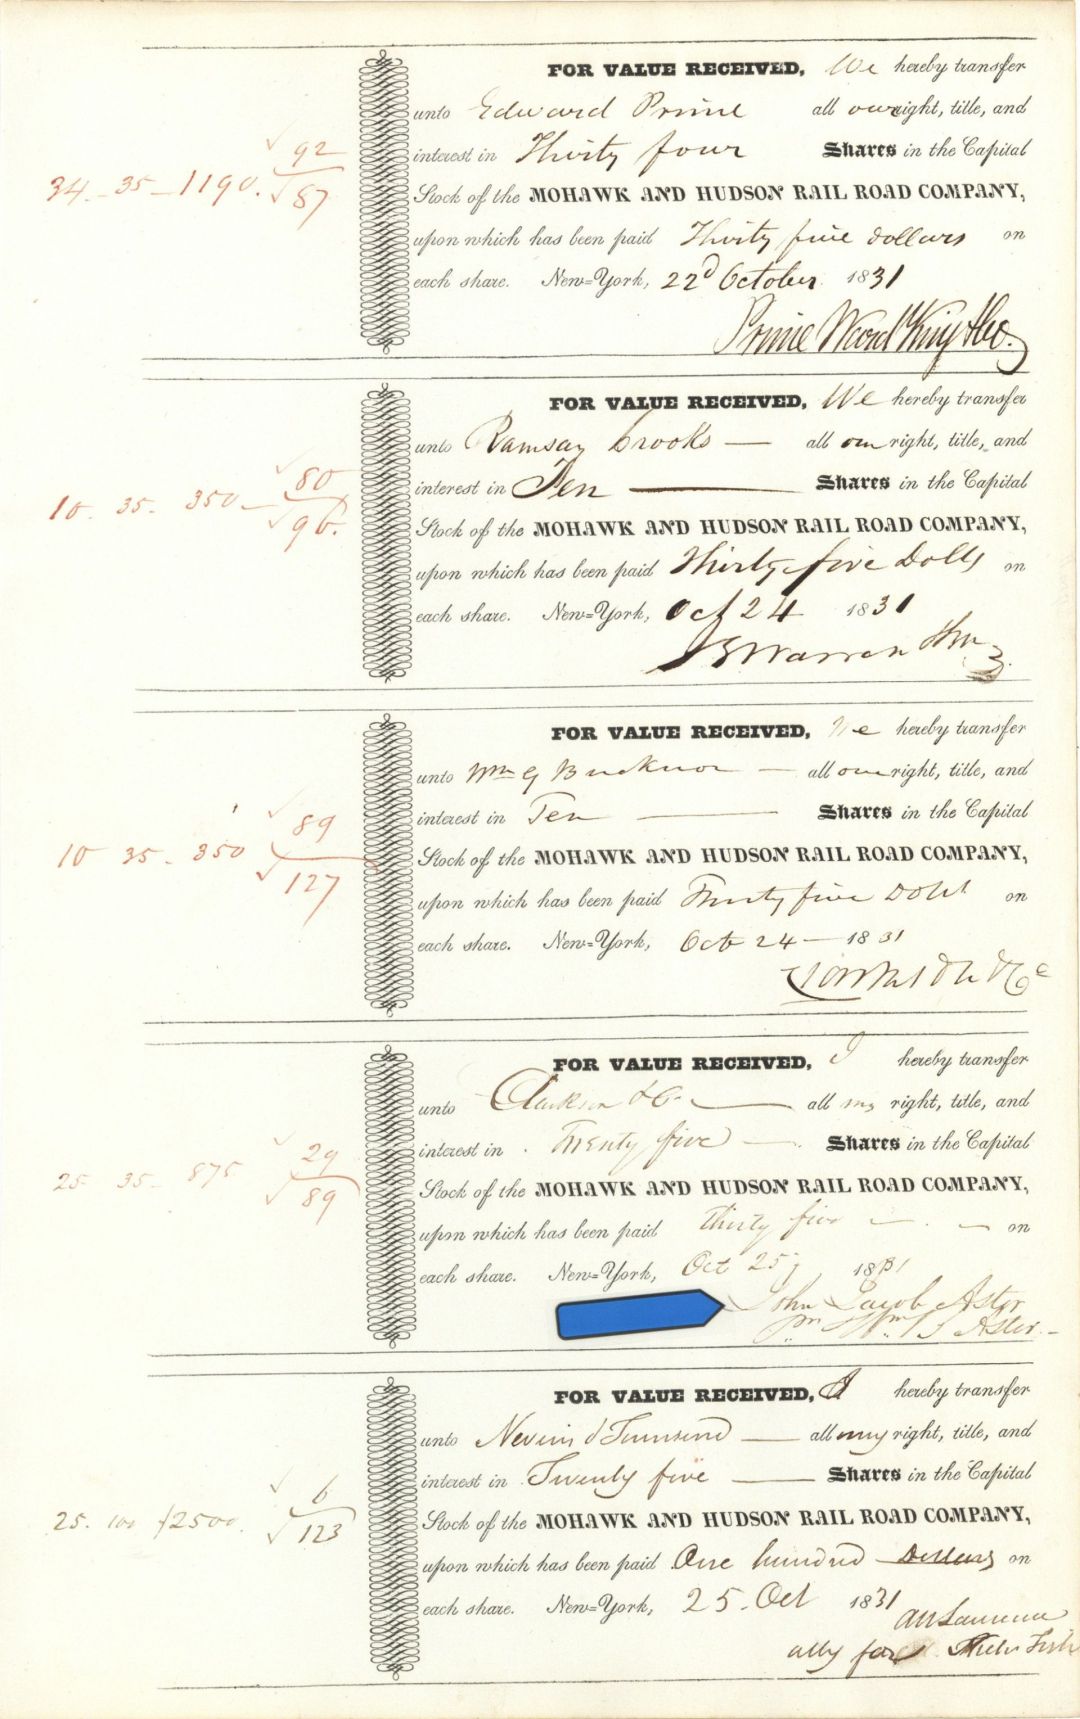 FOR VALUE RECEIVED, We hereby transfer
unto Edward Prime all our right, title, and
interest in Thirty four Shares in the Capital
Stock of the MOHAWK AND HUDSON RAIL ROAD COMPANY,
upon which has been paid Thirty five dollars on
each share. New=York, 22d October 1831
Prime Ward King & Co.
34 - 35 - 1190. 92
87
FOR VALUE RECEIVED, We hereby transfer
unto Ramsay Crooks — all our right, title, and
interest in Ten — Shares in the Capital
Stock of the MOHAWK AND HUDSON RAIL ROAD COMPANY,
upon which has been paid Thirty five Dolls on
each share. New=York, Oct 24 1831
Warren
10. 35. 350 - 80
96.
FOR VALUE RECEIVED, We hereby transfer
unto Wm G Bucknor — all our right, title, and
interest in Ten — Shares in the Capital
Stock of the MOHAWK AND HUDSON RAIL ROAD COMPANY,
upon which has been paid Thirty five Dolls on
each share. New=York, Oct 24 — 1831
10 35 - 350 89
127
FOR VALUE RECEIVED, I hereby transfer
unto Clarkson & Co — all my right, title, and
interest in Twenty five — Shares in the Capital
Stock of the MOHAWK AND HUDSON RAIL ROAD COMPANY,
upon which has been paid thirty five — on
each share. New=York, Oct 25 1831
John Jacob Astor
pr Wm B Astor
25 35 - 875 29
89
FOR VALUE RECEIVED, I hereby transfer
unto Nevins & Townsend — all my right, title, and
interest in Twenty five — Shares in the Capital
Stock of the MOHAWK AND HUDSON RAIL ROAD COMPANY,
upon which has been paid One hundred Dollars on
each share. New=York, 25. Oct 1831
Lawrence
atty for
25. 100 2500. 6
123